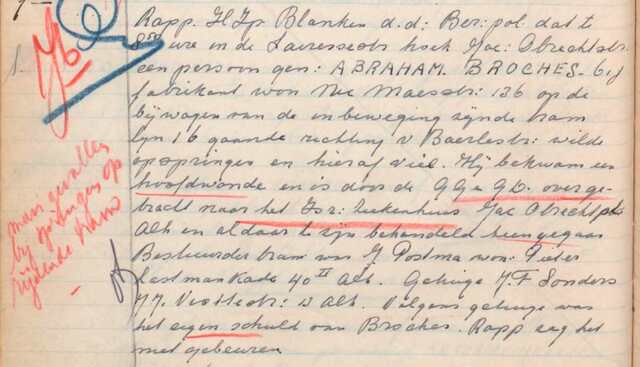 7-
Rapp. H Ip Blanken d.d: Ber: pol. dat te
8 ure in de Lairessestr hoek Jac: Obrechtstr.
1. een persoon gen: ABRAHAM. BROCHES. 61 j
fabrikant won Nic Maesstr: 136 op de
bijwagen van de in beweging zijnde tram
lijn 16 gaande richting v Baerlestr: wilde
opspringen en hieraf viel. Hij bekwam een
hoofdwonde en is door de GG e GD. overge-
bracht naar het Isr: ziekenhuis Jac Obrechtpl
Alh en aldaar te zijn behandeld heengegaan
Bestuurder tram was J Postma won: Pieter
Lastmankade 40 II Alh. Getuige J.F Sonders
Alh. Volgens getuige was
het eigen schuld van Broches. Rapp zag het
niet gebeuren
man gevallen
bij springen op
rijdende tram
-